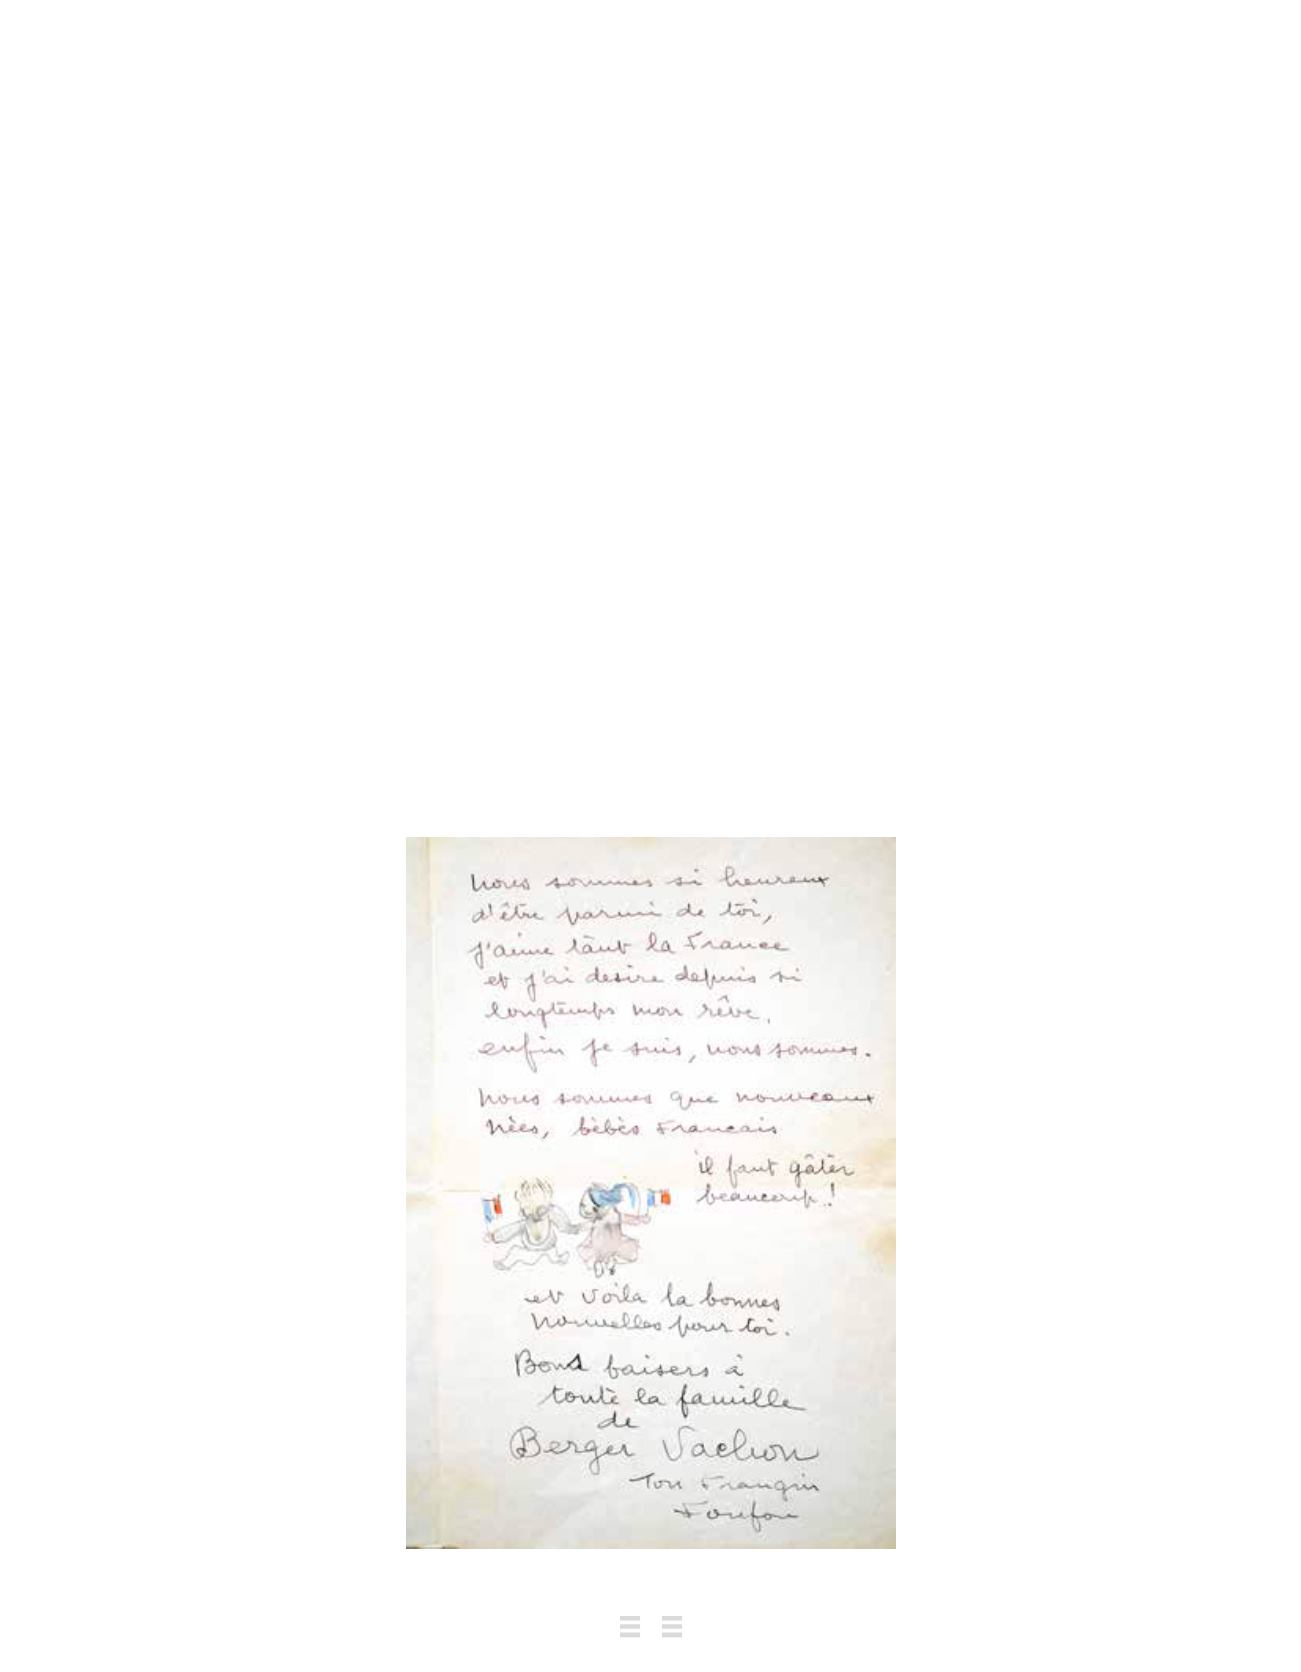 Nous sommes si heureux
d'être parmi de tōi,
j'aime tānt la France
et j'ai desire depuis si
longtēmps mon rêve.
enfin je suis, nous sommes.
Nous sommes que nouveaux
nèes, bèbès Francais
il faut gâtèr
beaucoup!
et voila la bonnes
nouvelles pour toi.
Bons baisers à
toutè la famille
de
Berger Vachon
Ton Frangin
Foufou